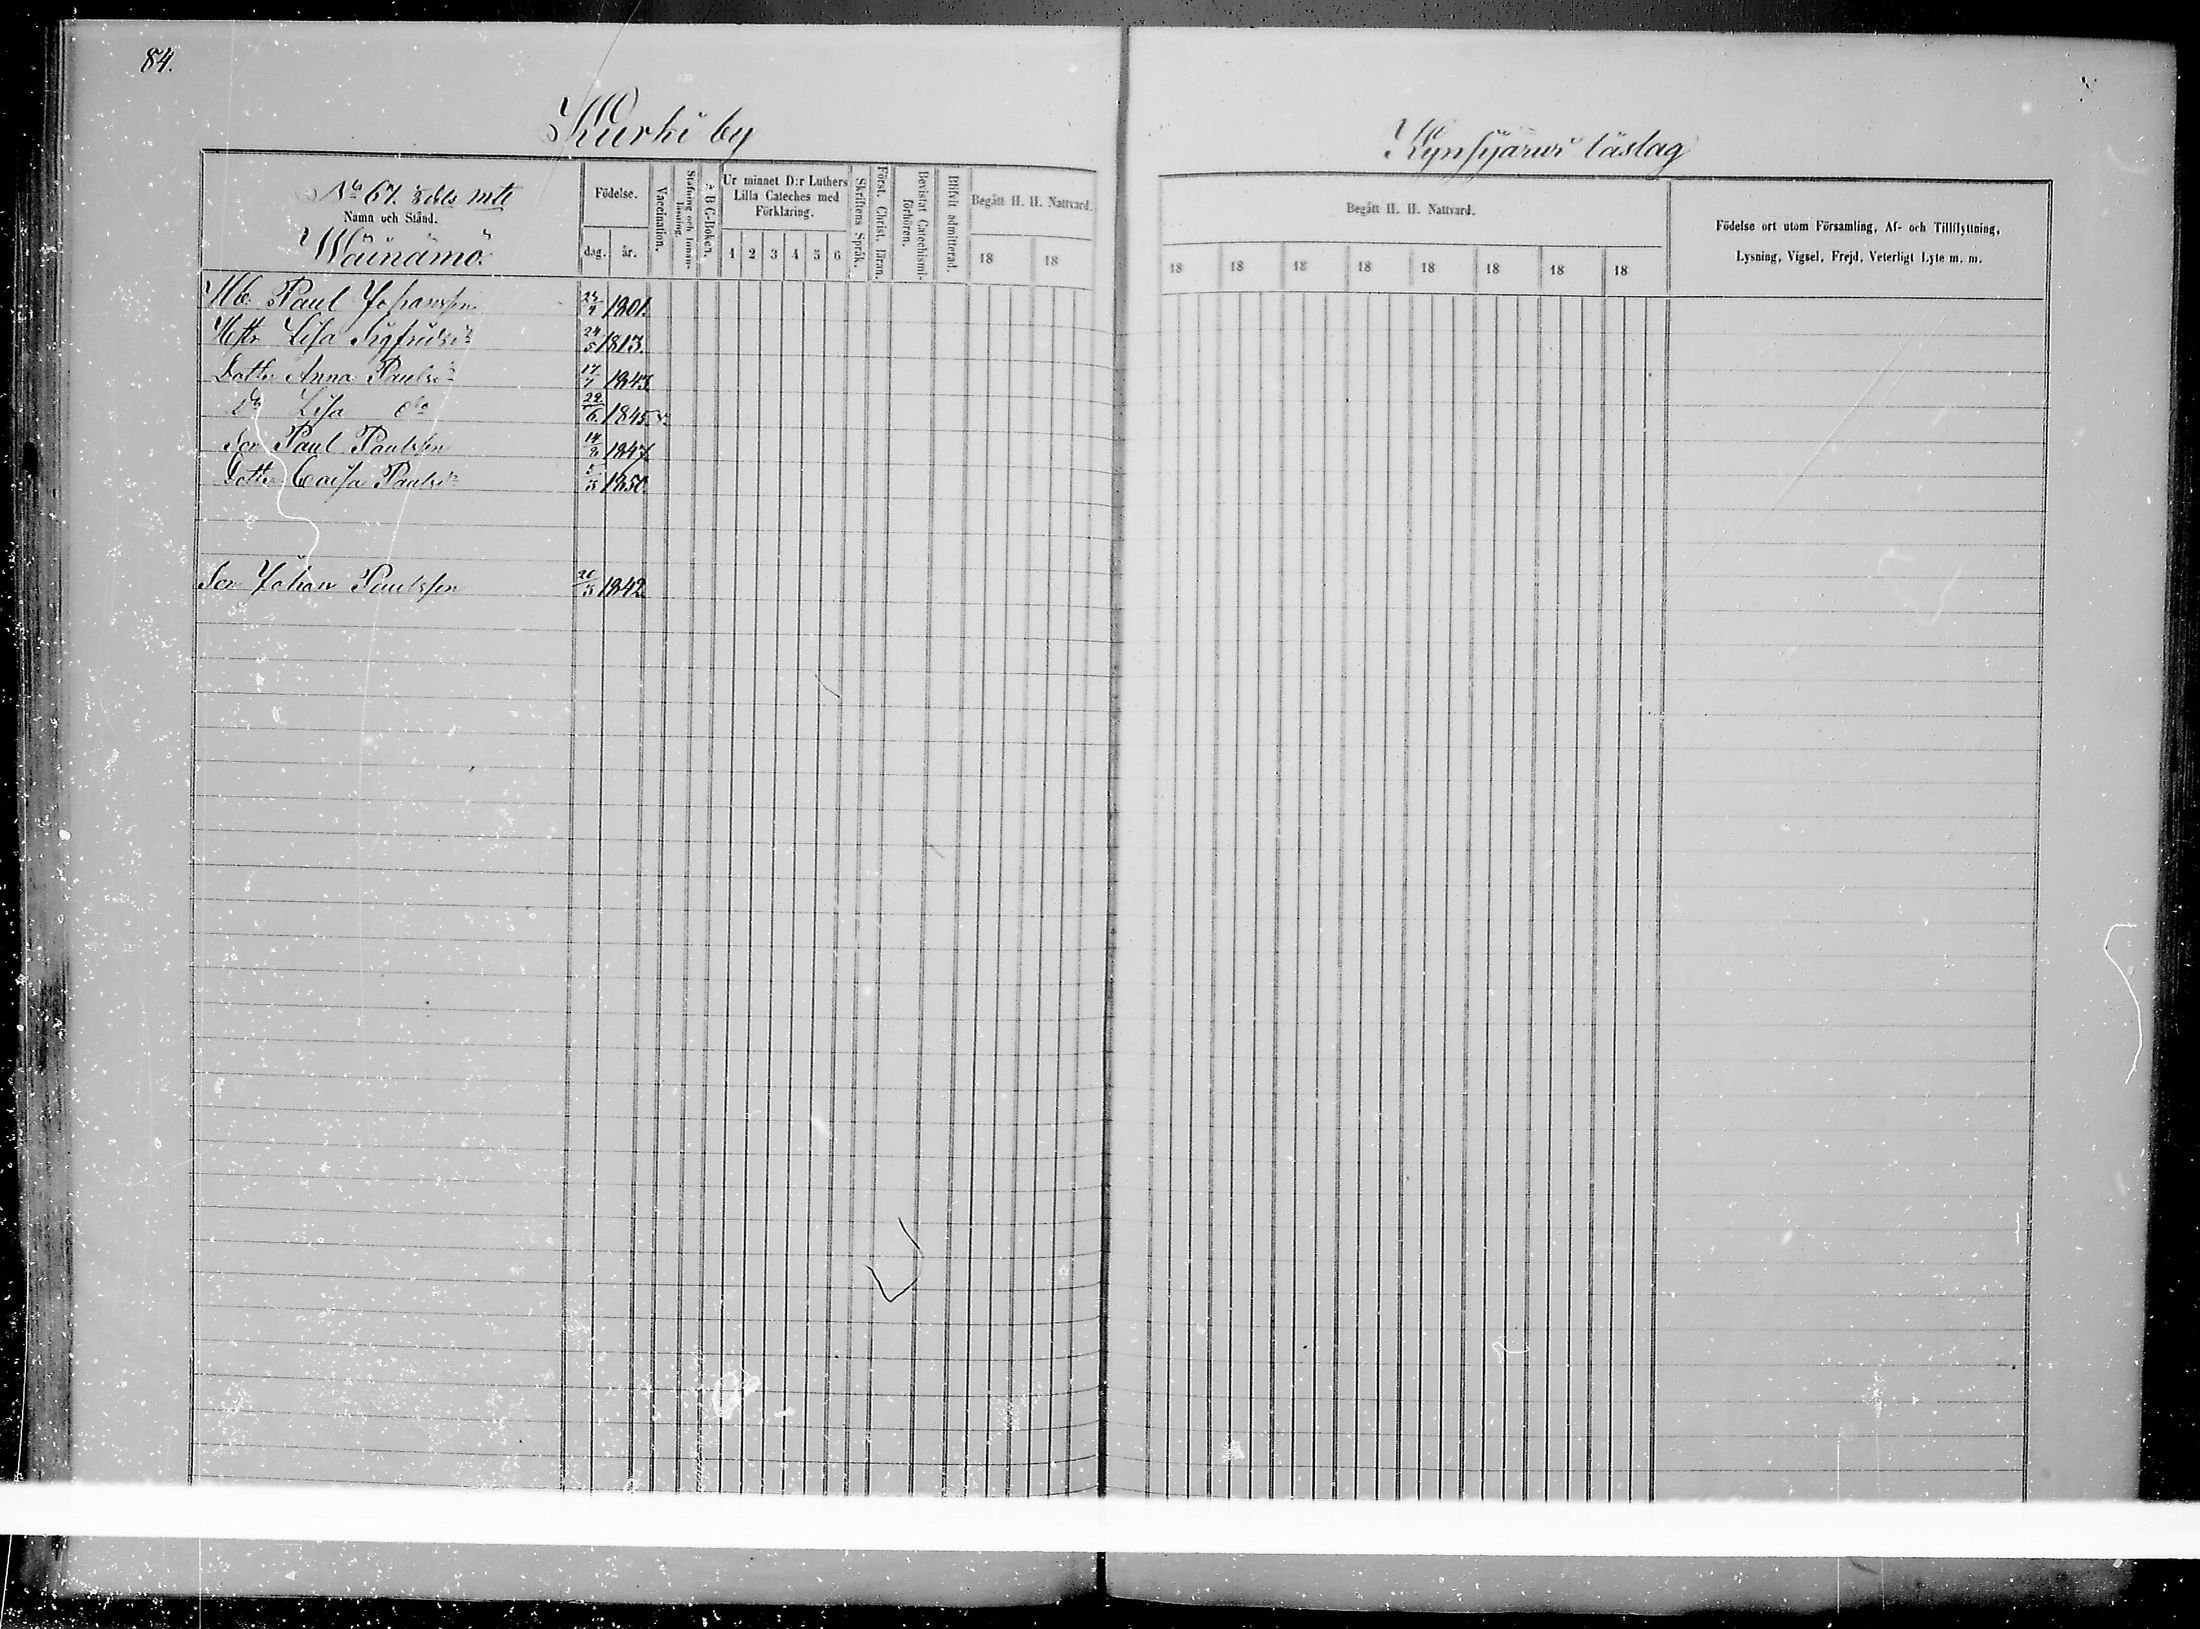 84.
Kurki by
Kynsijärwi läslag
No 67. mtl
Namn och Stånd.
Wäinämö
Födelse.
dag. år.
Vaccination.
Stafning och Innanläsning.
A B C-Boken.
Ur minnet D:r Luthers Lilla Cateches med Förklaring.
1 2 3 4 5 6
Skriftens Språk.
Först. Christ. läran.
Bevistat Catechismiförhören.
Blifvit admitterad.
Begått H. H. Nattvard.
18 18
Begått H. H. Nattvard.
18 18 18 18 18 18 18 18
Födelse ort utom Församling, Af- och Tillflyttning,
Lysning, Vigsel, Frejd, Veterligt Lyte m. m.
Paul Johansson 1801.
Lisa Sigfridsdr 24/5 1813.
Dottr Anna Paulsdr 17/7 1843
Do Lisa do 22/6 1845
Son Paul Paulsson 14/8 1847
Dottr Caisa Paulsdr 5/5 1850
Son Johan Paulsson 20/5 1842